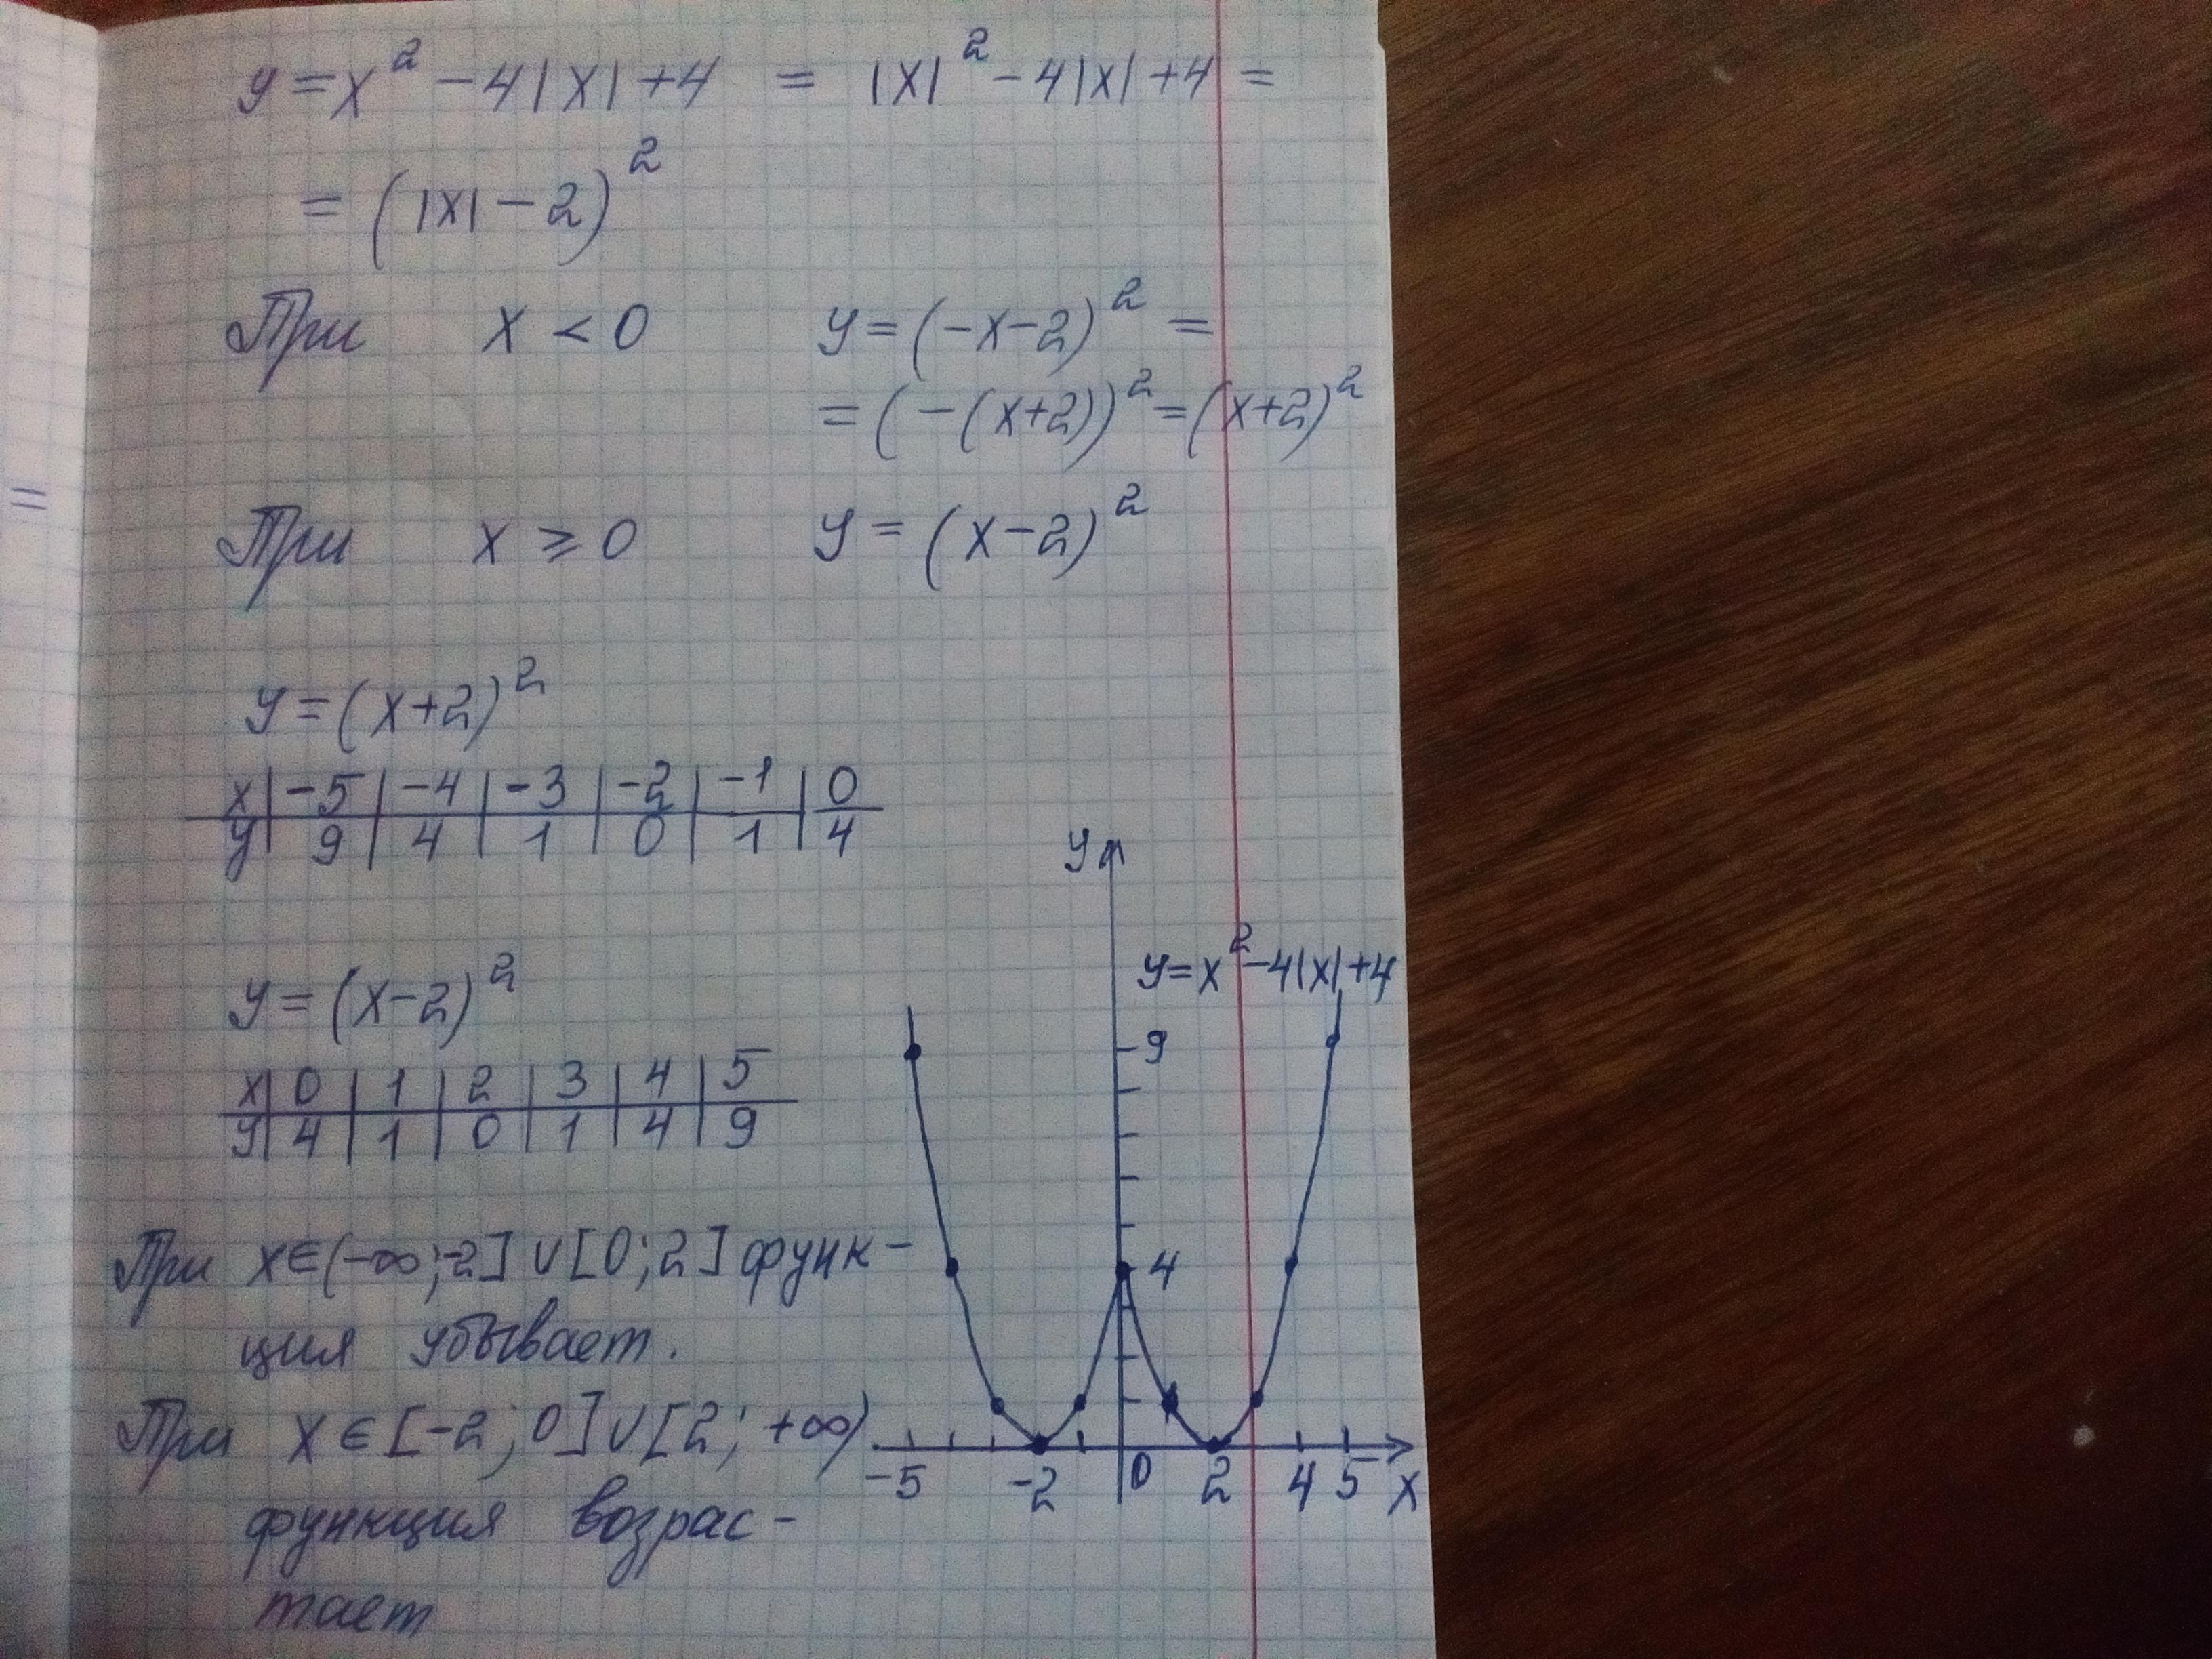 y = x² - 4|x| + 4 = |x|² - 4|x| + 4 =
= (|x| - 2)²
При x < 0 y = (-x-2)² =
= (-(x+2))² = (x+2)²
=
При x ≥ 0 y = (x-2)²
y = (x+2)²
x | -5 | -4 | -3 | -2 | -1 | 0
y | 9 | 4 | 1 | 0 | 1 | 4
y
y = x² - 4|x| + 4
y = (x-2)²
9
x | 0 | 1 | 2 | 3 | 4 | 5
y | 4 | 1 | 0 | 1 | 4 | 9
При x ∈ (-∞; -2] ∪ [0; 2] функ-
4
ция убывает.
При x ∈ [-2; 0] ∪ [2; +∞)
-5 -2 0 2 4 5 x
функция возрас-
тает